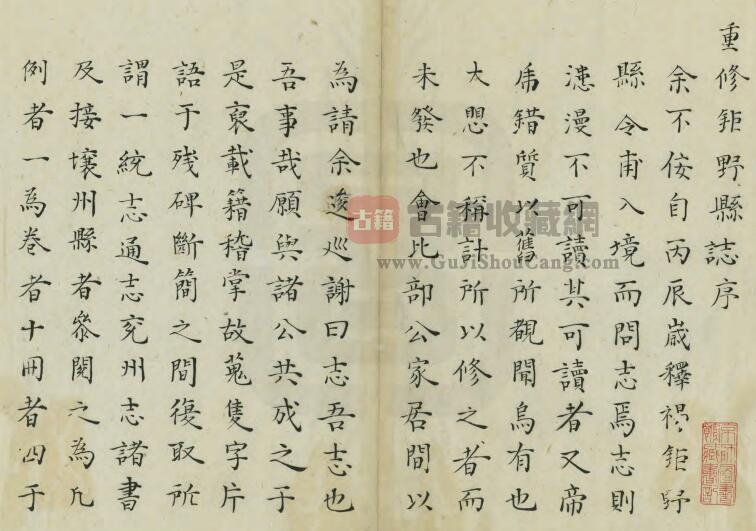 重修鉅野縣誌序
余不佞自丙辰歲釋褐鉅野
縣令甫入境而問志焉志則
漶漫不可讀其可讀者又帝
乕錯質以舊所覩聞烏有也
大懼不稱計所以修之者而
未發也會比部公家居間以
為請余逡巡謝曰志吾志也
吾事哉願與諸公共成之于
是裒載籍稽掌故蒐隻字片
語于残碑斷簡之間復取所
謂一統志通志兖州志諸書
及接壤州縣者叅閱之為凡
例者一為巻者十冊者四于
古籍
古籍收藏網
www.GuJiShouCang.com